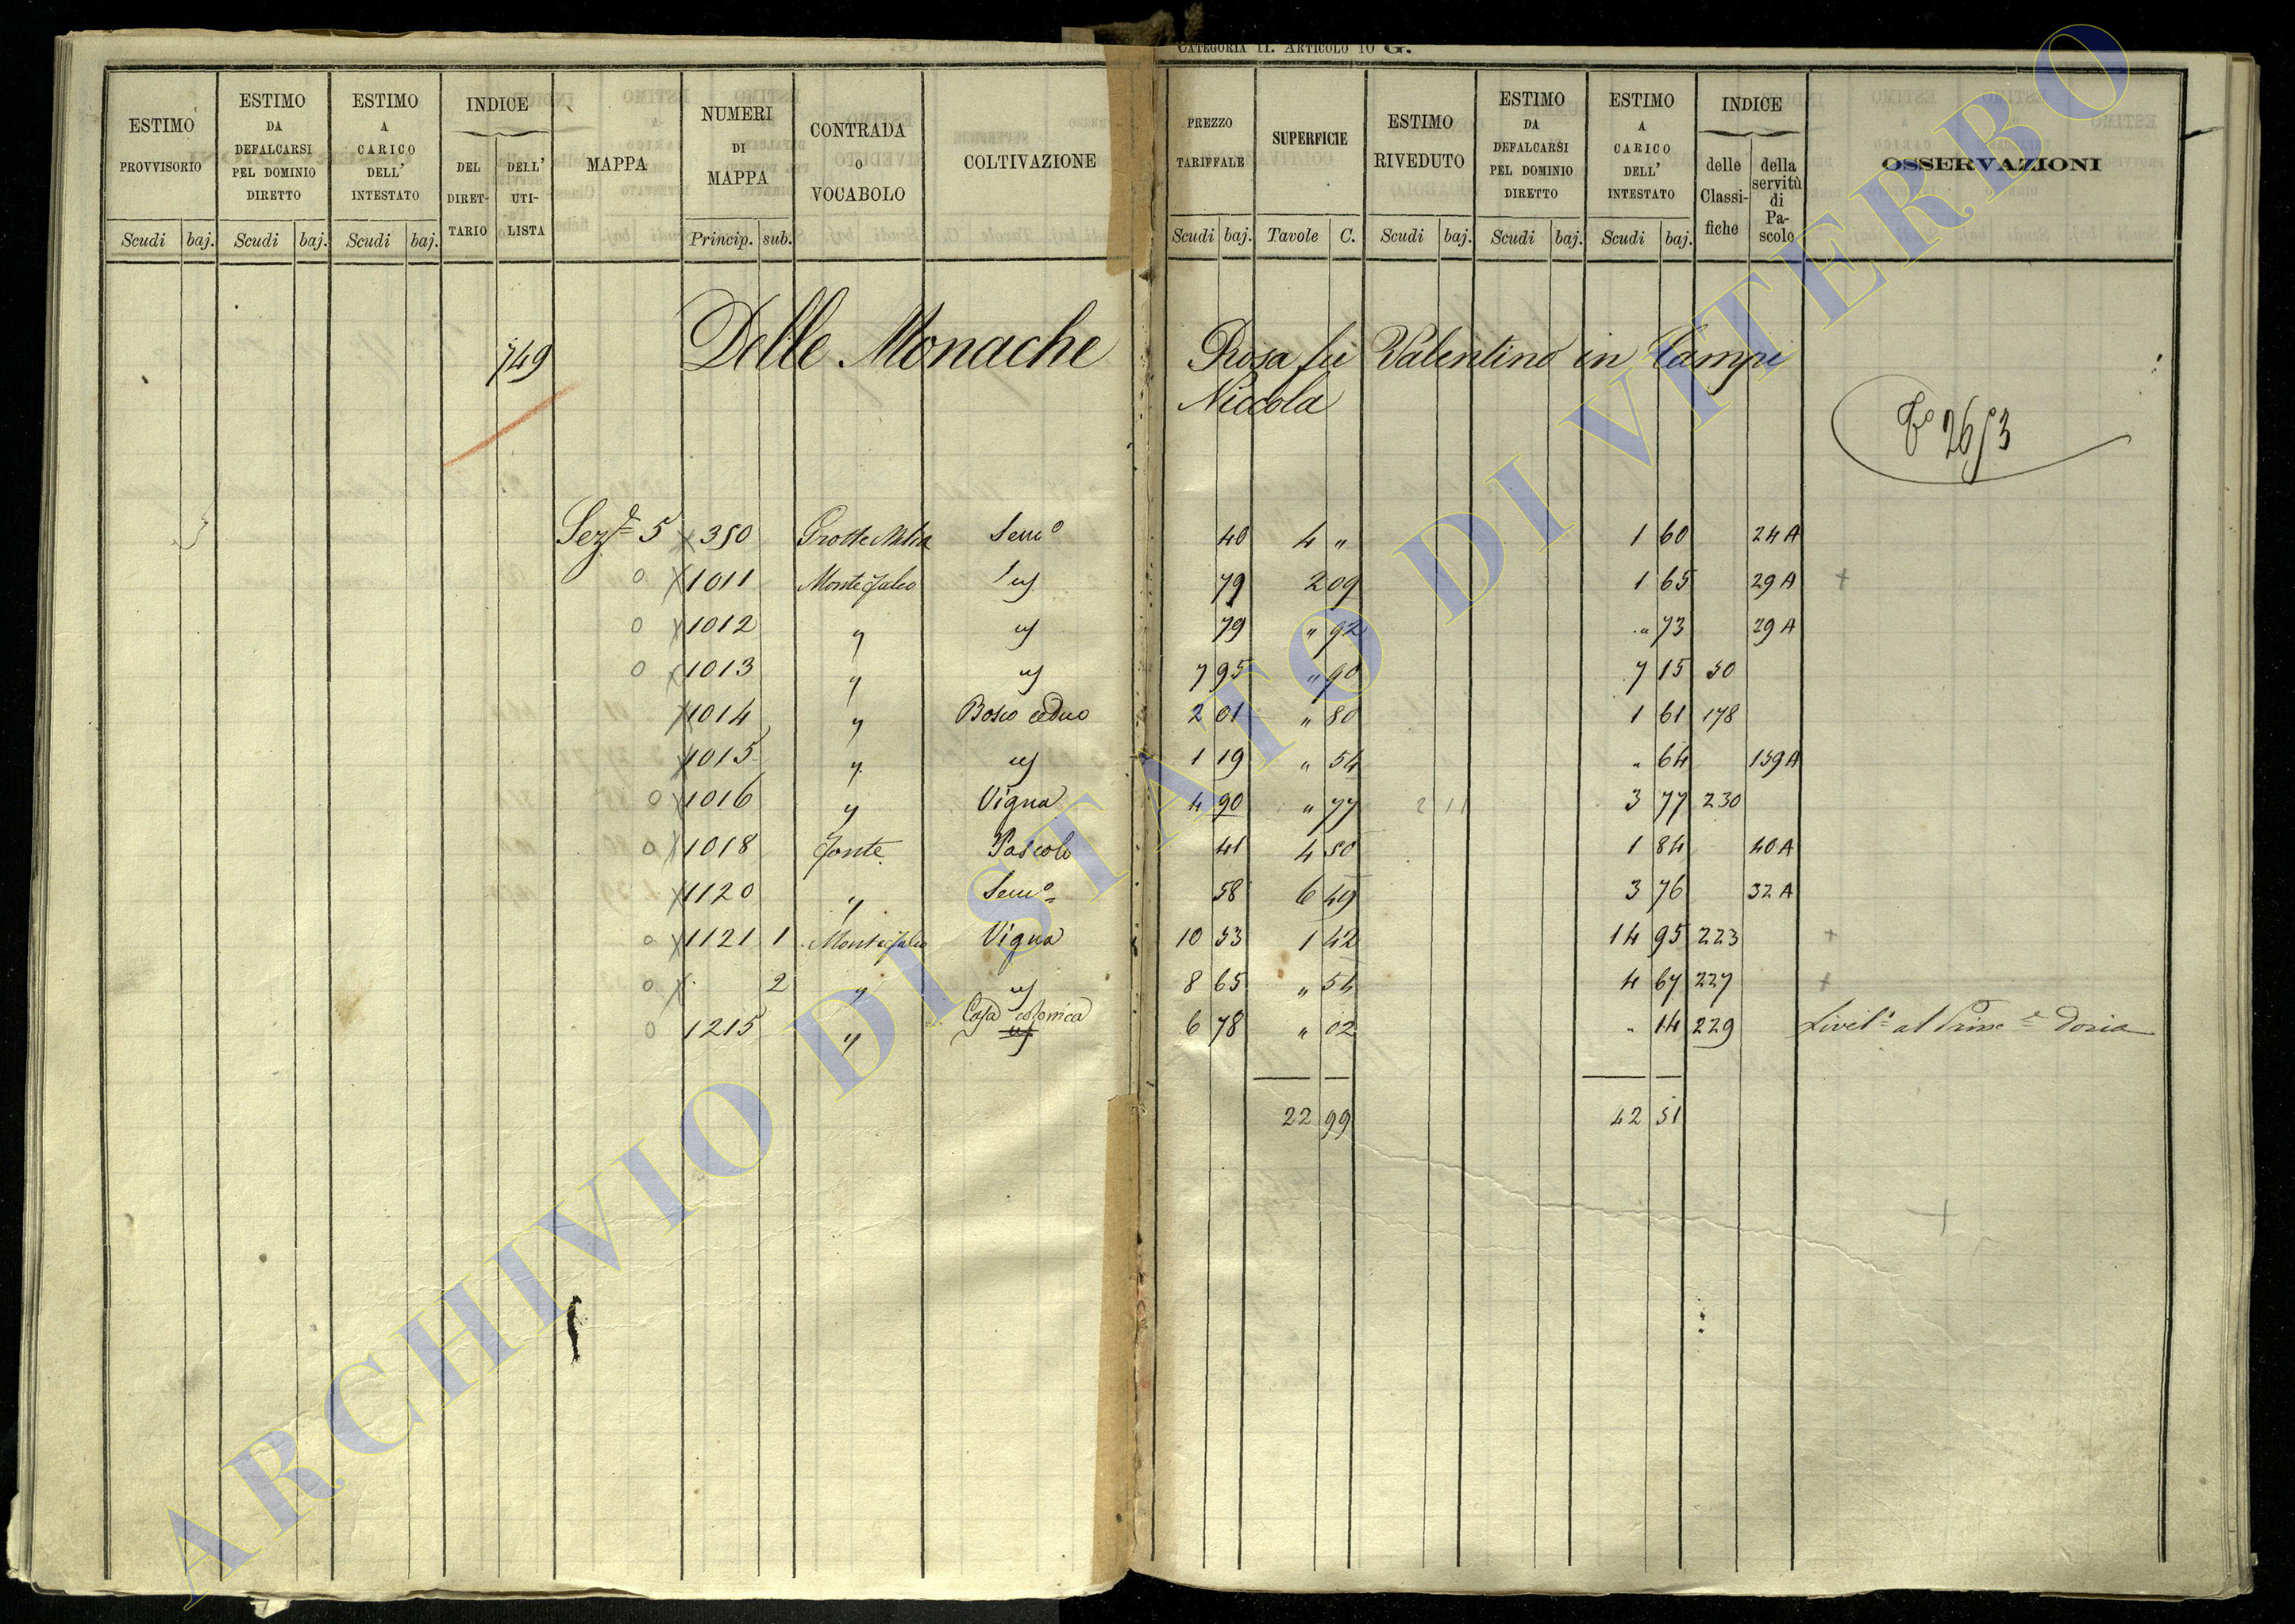 CATEGORIA II. ARTICOLO 10 G.
ESTIMO PROVVISORIO Scudi baj. | ESTIMO DA DEFALCARSI PEL DOMINIO DIRETTO Scudi baj. | ESTIMO A CARICO DELL' INTESTATO Scudi baj. | INDICE DEL DIRET- TARIO | DELL' UTI- LISTA | MAPPA | NUMERI DI MAPPA Princip. sub. | CONTRADA O VOCABOLO | COLTIVAZIONE | PREZZO TARIFFALE Scudi baj. | SUPERFICIE Tavole C. | ESTIMO RIVEDUTO Scudi baj. | ESTIMO DA DEFALCARSI PEL DOMINIO DIRETTO Scudi baj. | ESTIMO A CARICO DELL' INTESTATO Scudi baj. | INDICE delle Classi- fiche | della servitù di Pa- scolo | OSSERVAZIONI
749 Delle Monache Rosa fu Valentino in Campi
Niccola
26/3
Sez.e 5 x 350 Grotte Sem.o 40 4 " 1 60 24A
0 x 1011 Montefalco 79 2 09 1 65 29A +
0 x 1012 " " 79 " 92 " 73 29A
0 x 1013 " " 7 95 " 90 7 15 50
x 1014 " Bosco ceduo 2 01 " 80 1 61 178
x 1015 " " 1 19 " 54 " 64 159A
0 x 1016 " Vigna 4 90 " 77 2 11 3 77 230
0 x 1018 Fonte Pascolo 41 4 50 1 84 40A
x 1120 " Sem.o 58 6 49 3 76 32A
0 x 1121 1 Montefalco Vigna 10 53 1 42 14 95 223 +
0 x 2 " " 8 65 " 54 4 67 227 +
0 1215 " Casa colonica 6 78 " 02 " 14 229 Livel.o al Princ.e Doria
22 99 42 51
ARCHIVIO DI STATO DI VITERBO